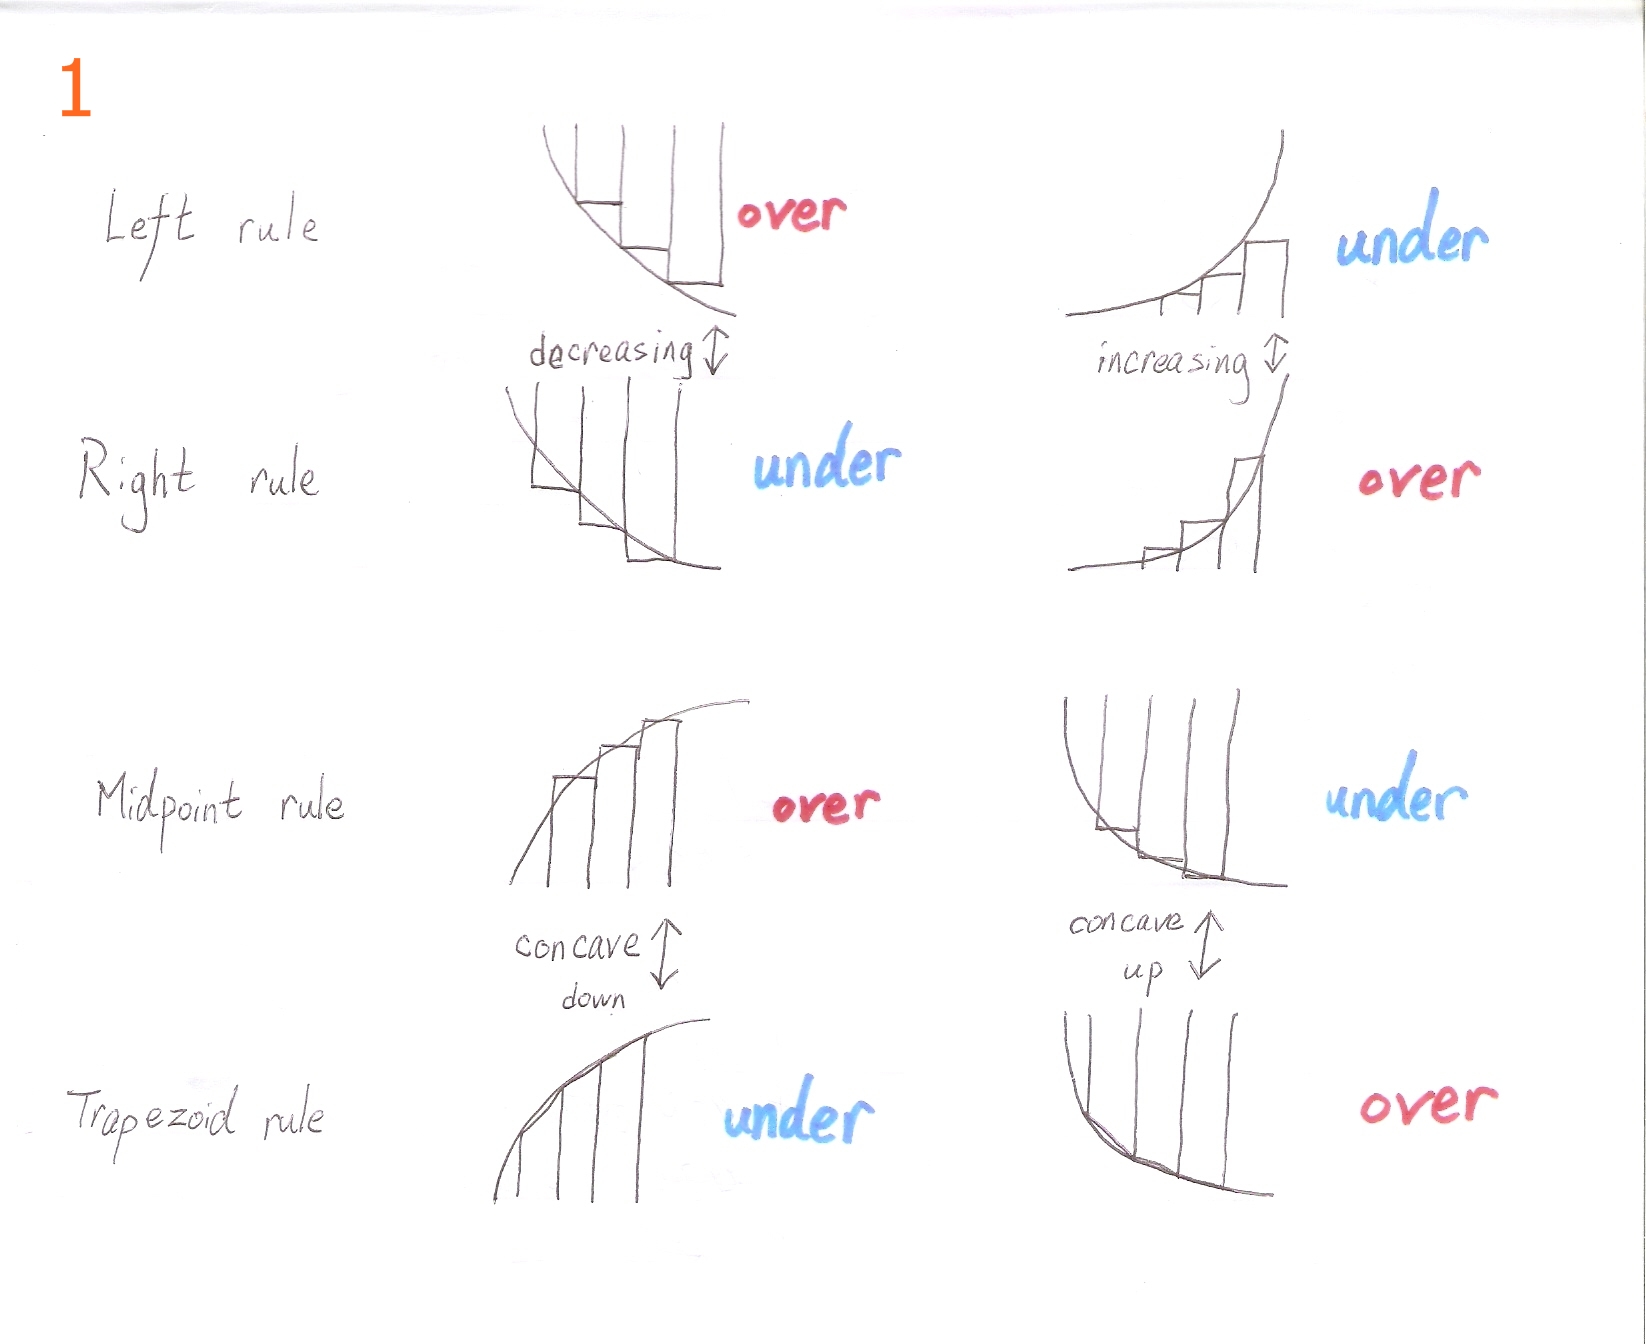 1
Left rule over under
decreasing increasing
Right rule under over
Midpoint rule over under
concave concave
down up
Trapezoid rule under over